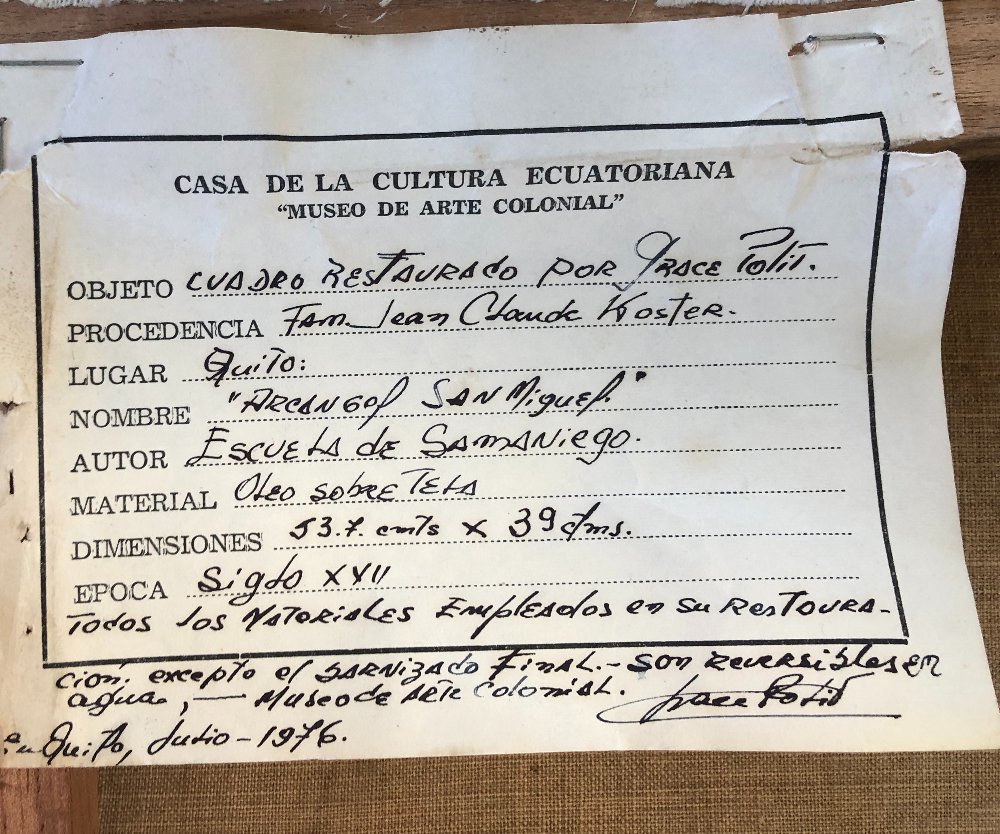 CASA DE LA CULTURA ECUATORIANA
“MUSEO DE ARTE COLONIAL”
OBJETO CUADRO RESTAURADO POR GRACE POLIT.
PROCEDENCIA Fam. Jean Claude Koster.
LUGAR Quito:
NOMBRE "ARCANGel SAN Miguel."
AUTOR ESCUELA de SAMANiego.
MATERIAL OLeo SOBRE TELA
DIMENSIONES 53.7. cmts x 39 ctms.
EPOCA Siglo XVII
TODOS LOS MATERIALES EMPLEADOS en su RESTAURA-
ción. excepto el BARNIZADO FINAL.- SON REVERSIBLES en
agua, — MUSEO de ARTE Colonial. Grace Polit
en Quito, Julio - 1976.